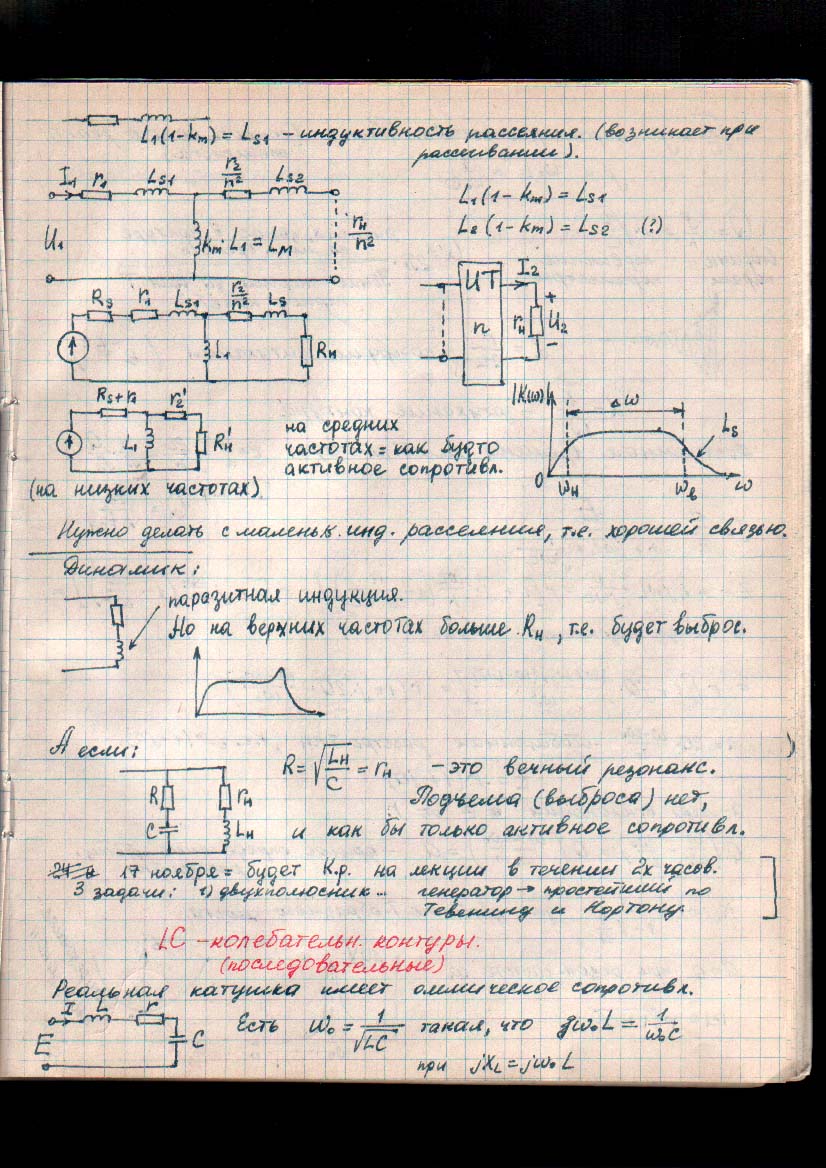 L₁(1-kₘ) = Lₛ₁ – индуктивность рассеяния. (возникает при
рассеивании).
I₁ r₁ Lₛ₁ r₂/n² Lₛ₂
U₁ kₘ·L₁ = Lₘ rₙ/n²
L₁(1-kₘ) = Lₛ₁
L₂(1-kₘ) = Lₛ₂ (?)
Rₛ r₁ Lₛ₁ r₂/n² Lₛ
L₁ Rₙ
ИТ I₂
n rₙ + U₂ –
Rₛ+r₁ r₂'
L₁ Rₙ'
(на низких частотах)
на средних
частотах = как будто
активное сопротивл.
|K(ω)| Δω
Lₛ
0 ωₙ ωв ω
Нужно делать с маленьк. инд. рассеяния, т.е. хорошей связью.
Динамик:
паразитная индукция.
Но на верхних частотах больше Rₙ, т.е. будет выброс.
А если:
R rₙ
C Lₙ
R = √(Lₙ/C) = rₙ – это вечный резонанс.
Подъема (выброса) нет,
и как бы только активное сопротивл.
17 ноября = будет К.р. на лекции в течении 2х часов.
3 задачи: 1) двухполюсник... генератор → простейший по
Тевенину и Нортону.
LC – колебательн. контуры.
(последовательные)
Реальная катушка имеет оммическое сопротивл.
I L r
E C
Есть ω₀ = 1/√LC такая, что jω₀L = 1/ω₀C
при jXL = jω₀L